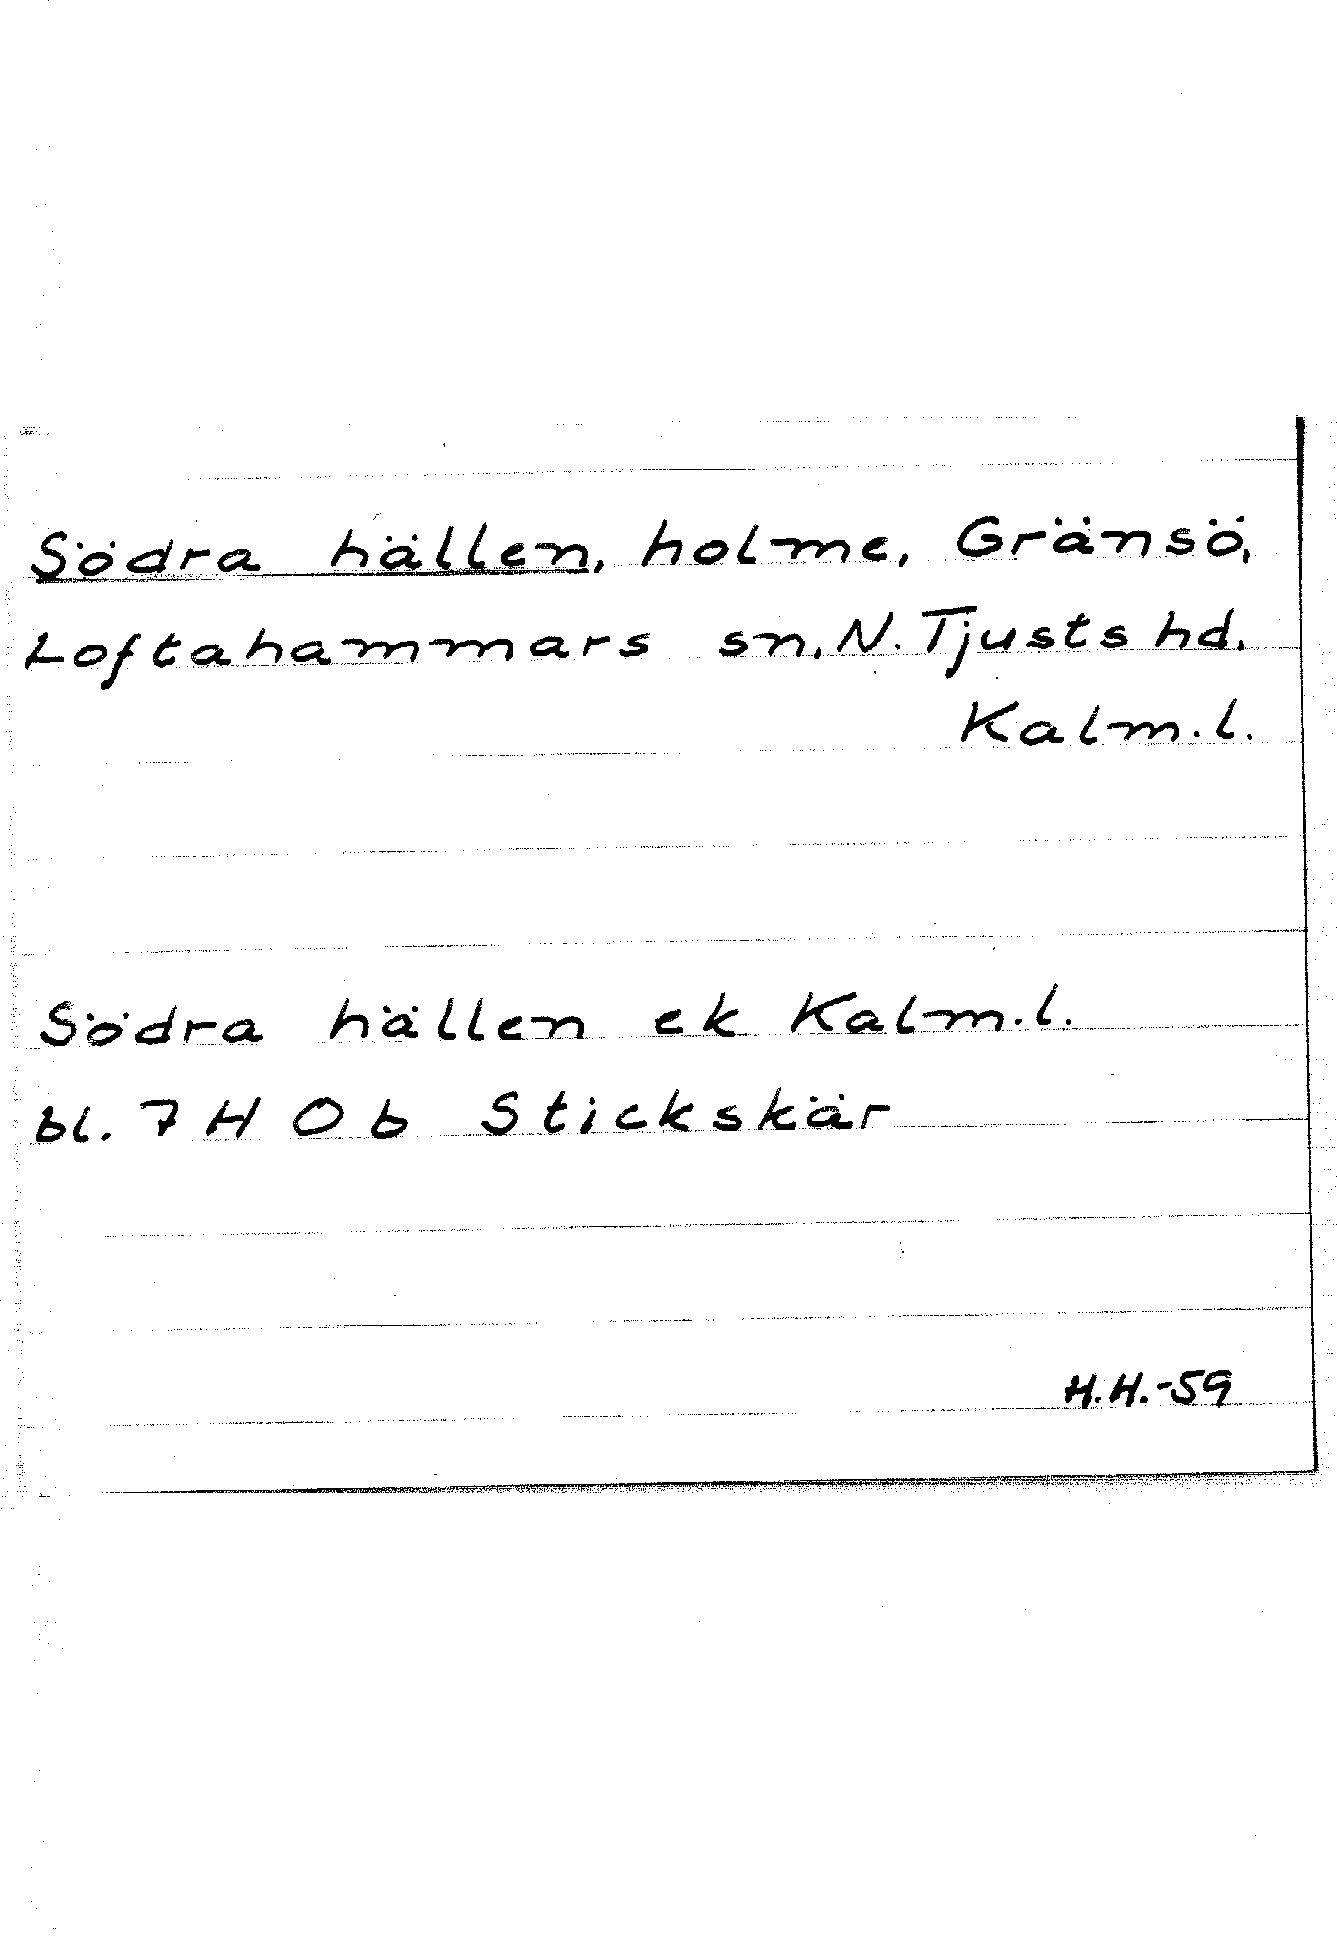 Södra hällen, holme, Gränsö,
Loftahammars sn, N. Tjusts hd.
Kalm. l.
Södra hällen ek Kalm. l.
bl. 7 H 0 b Stickskär
H.H.-59